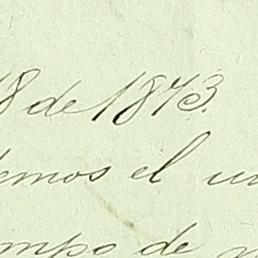 18 de 1873.
demos el un
empo de